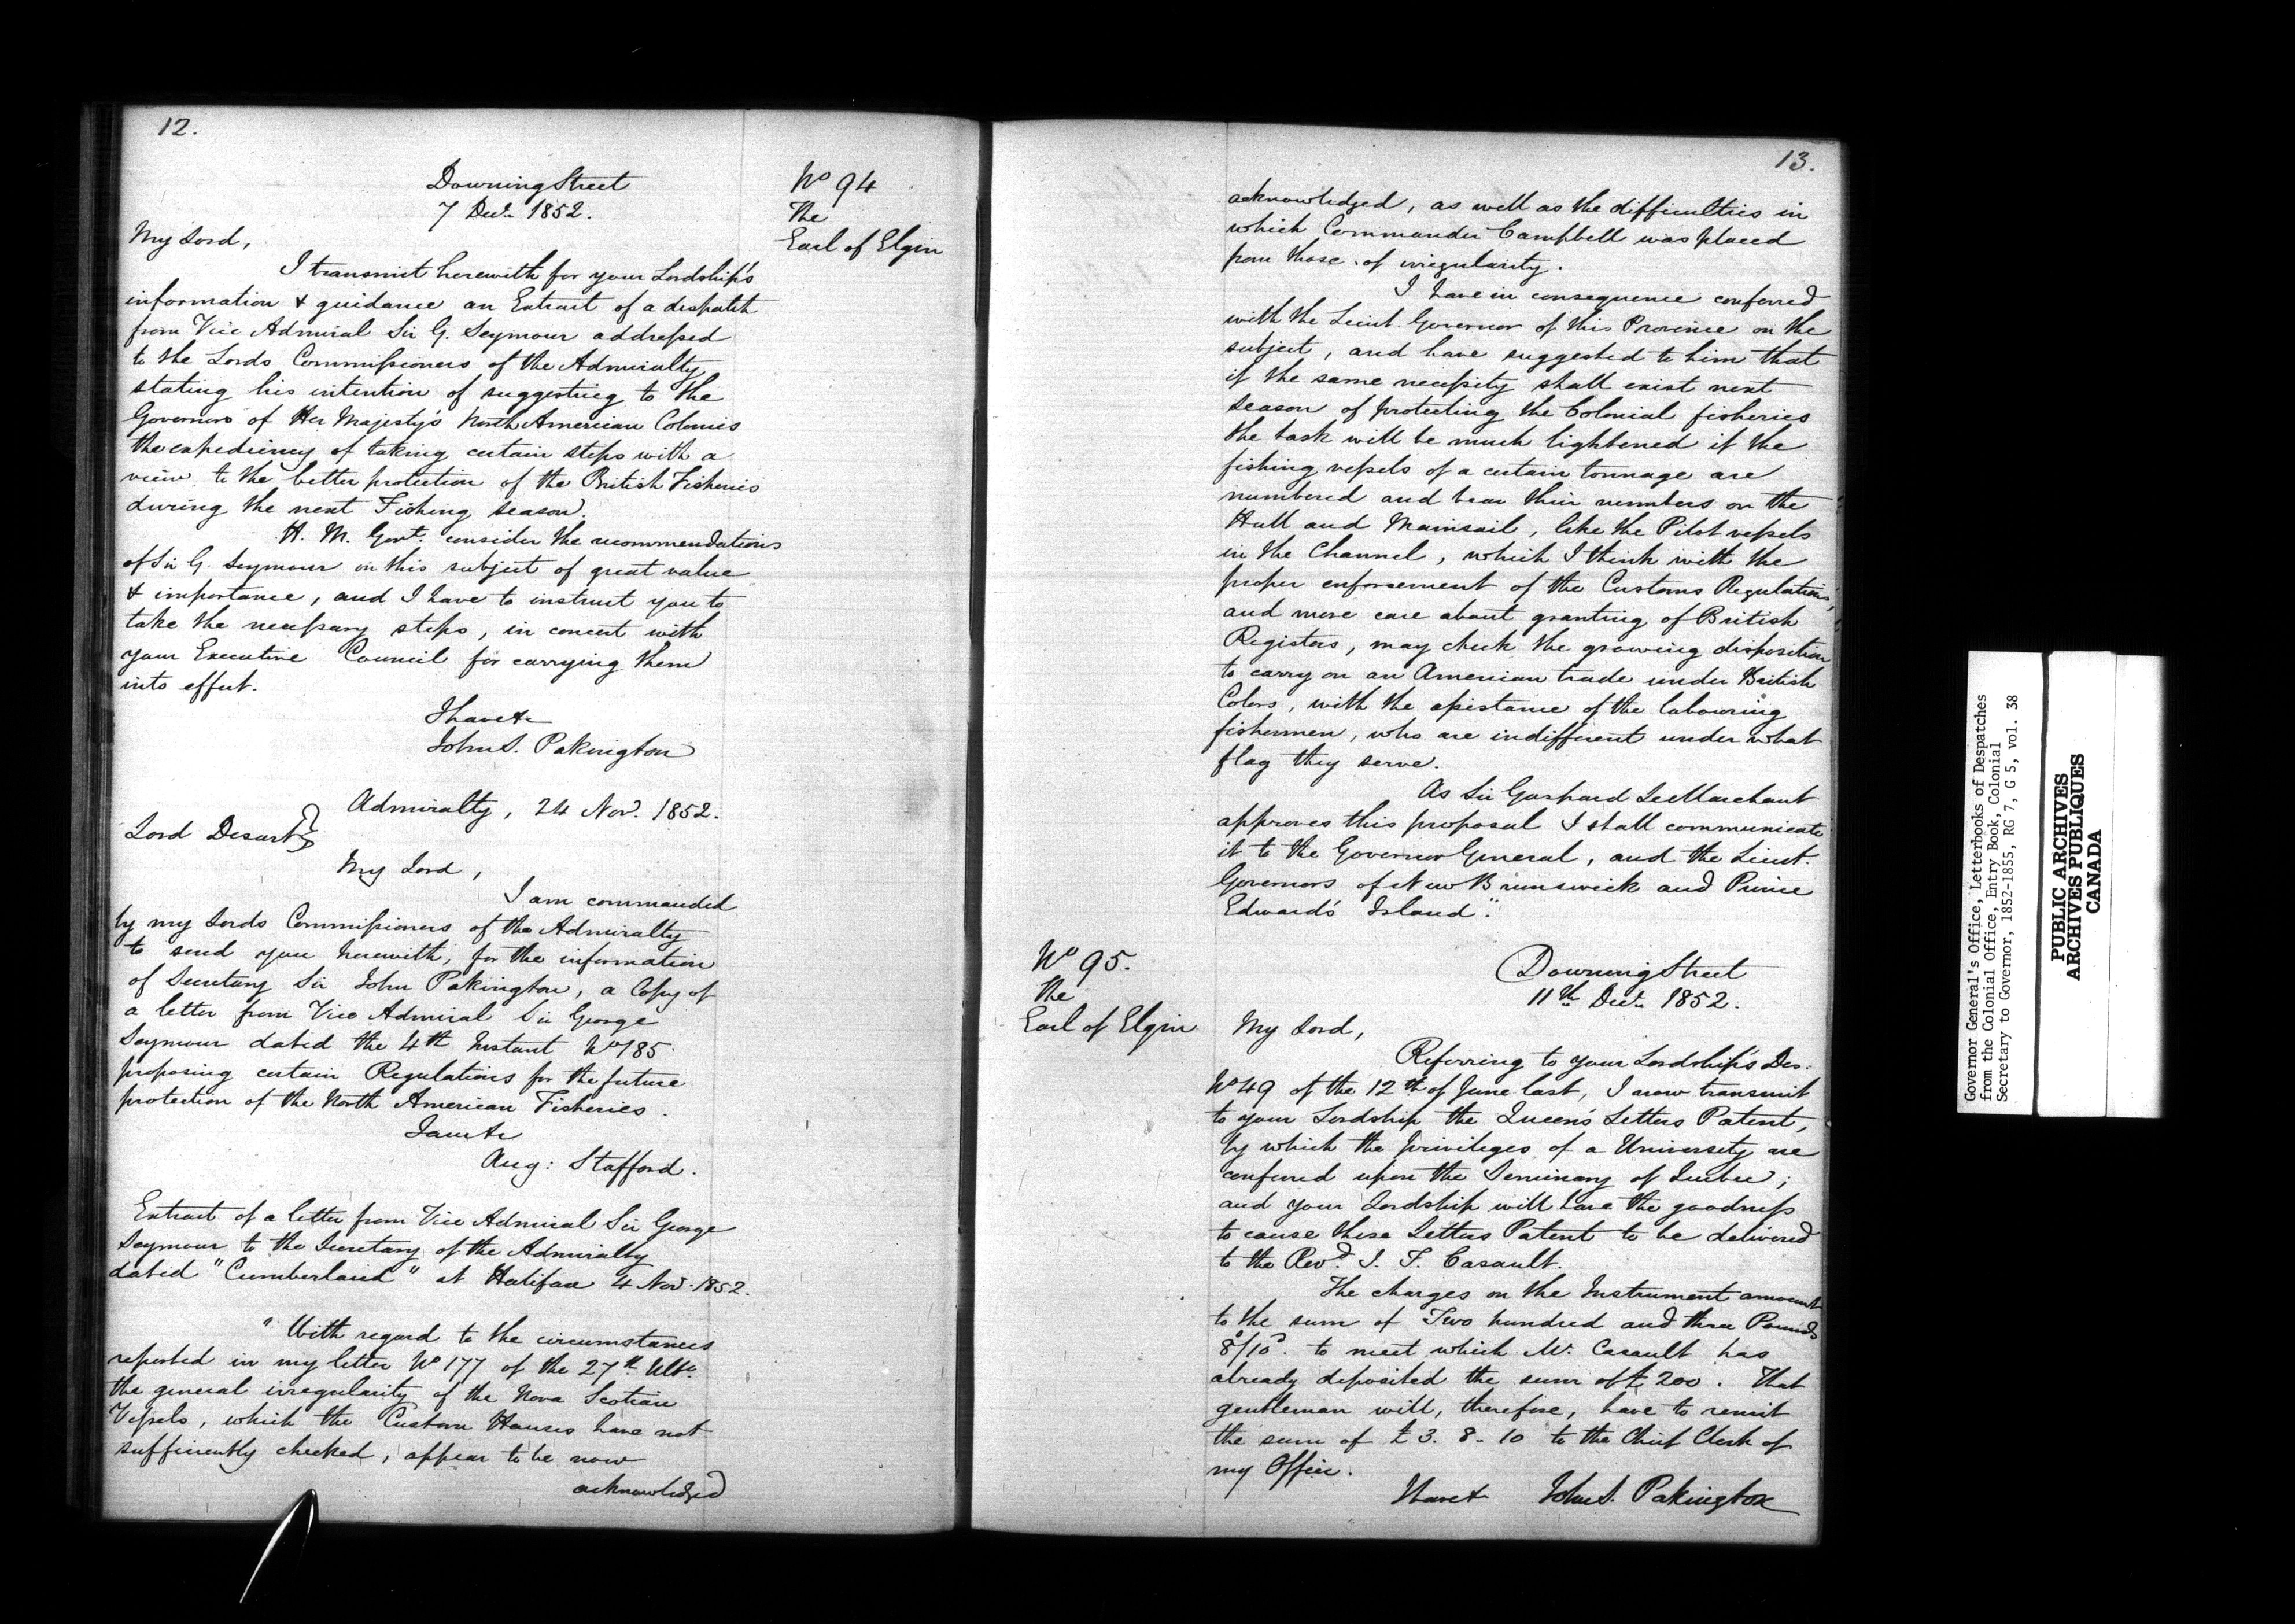 12.
Downing Street
7 Decr 1852.
No 94
The
Earl of Elgin
My Lord,
I transmit herewith for your Lordship's
information & guidance an Extract of a despatch
from Vice Admiral Sir G. Seymour addressed
to the Lords Commissioners of the Admiralty
stating his intention of suggesting to the
Governors of Her Majesty's North American Colonies
the expediency of taking certain steps with a
view to the better protection of the British Fisheries
during the next Fishing season.
H. M. Govt. consider the recommendations
of Sir G. Seymour on this subject of great value
& importance, and I have to instruct you to
take the necessary steps, in concert with
your Executive Council for carrying them
into effect.
I have &c
John S. Pakington
Admiralty, 24 Nov. 1852.
Lord Desart}
My Lord,
I am commanded
by my Lords Commissioners of the Admiralty
to send you herewith, for the information
of Secretary Sir John Pakington, a Copy of
a letter from Vice Admiral Sir George
Seymour dated the 4th Instant No 185
proposing certain Regulations for the future
protection of the North American Fisheries.
I am &c
Aug: Stafford.
Extract of a letter from Vice Admiral Sir George
Seymour to the Secretary of the Admiralty
dated "Cumberland" at Halifax 4 Nov. 1852.
"With regard to the circumstances
reported in my letter No 177 of the 27th Ulto.
the general irregularity of the Nova Scotian
Vessels, which the Custom Houses have not
sufficiently checked, appear to be now
acknowledged
13.
acknowledged, as well as the difficulties in
which Commander Campbell was placed
from those of irregularity.
I have in consequence conferred
with the Lieut. Governor of this Province on the
subject, and have suggested to him that
if the same necessity shall exist next
season of protecting the Colonial fisheries
the task will be much lightened if the
fishing vessels of a certain tonnage are
numbered and bear their numbers on the
Hull and Mainsail, like the Pilot vessels
in the Channel, which I think with the
proper enforsement of the Customs Regulations,
and more care about granting of British
Registers, may check the growing disposition
to carry on an American trade under British
Colors, with the assistance of the labouring
fishermen, who are indifferent under what
flag they serve.
As Sir Gaspard LeMarchant
approves this proposal I shall communicate
it to the Governor General, and the Lieut.
Governors of New Brunswick and Prince
Edward's Island."
No 95.
The
Earl of Elgin
Downing Street
11th Decr 1852.
My Lord,
Referring to your Lordship's Des:
No 49 of the 12th of June last, I now transmit
to your Lordship the Queen's Letters Patent,
by which the privileges of a University are
conferred upon the Seminary of Quebec;
and your Lordship will have the goodness
to cause these Letters Patent to be delivered
to the Revd. I. F. Casault.
The charges on the Instrument amount
to the sum of Two hundred and three Pounds
8s/10d. to meet which Mr. Casault has
already deposited the sum of £200. That
gentleman will, therefore, have to remit
the sum of £3. 8. 10 to the Chief Clerk of
my Office.
I have &c John S. Pakington
Governor General's Office, Letterbooks of Despatches
from the Colonial Office, Entry Book, Colonial
Secretary to Governor, 1852-1855, RG 7, G 5, vol. 38
PUBLIC ARCHIVES
ARCHIVES PUBLIQUES
CANADA